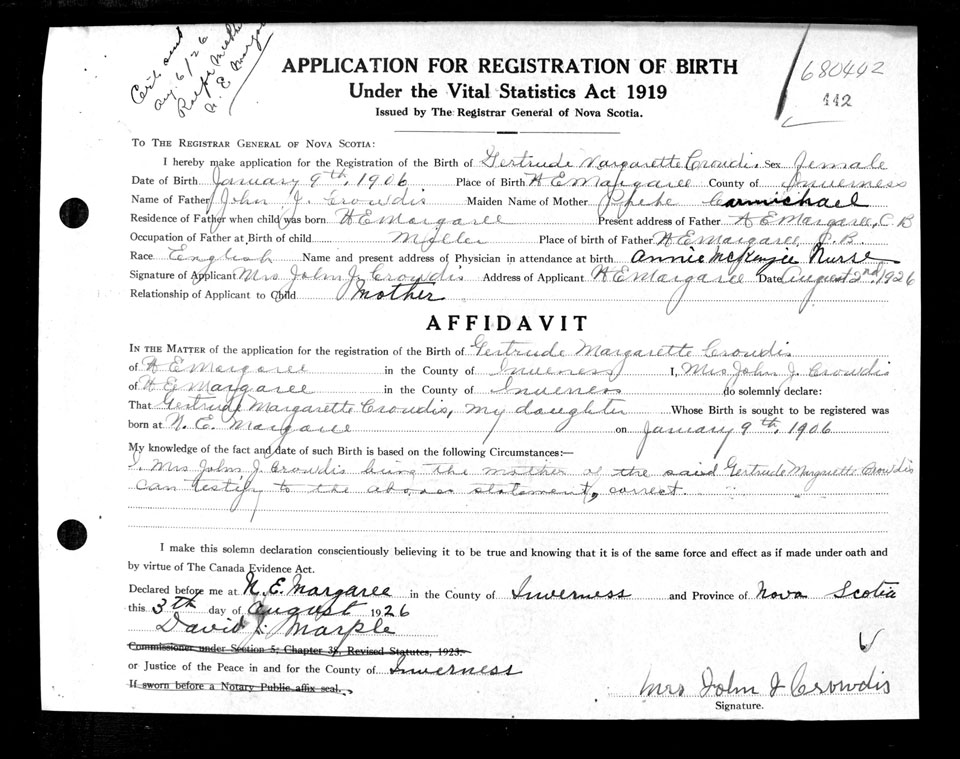 Cert. sent
Aug 6/26
Ralph
N E Margaree
680442
112
APPLICATION FOR REGISTRATION OF BIRTH
Under the Vital Statistics Act 1919
Issued by The Registrar General of Nova Scotia.
TO THE REGISTRAR GENERAL OF NOVA SCOTIA:
I hereby make application for the Registration of the Birth of Gertrude Margarette Crowdis. Sex Female
Date of Birth January 9th, 1906 Place of Birth N E Margaree County of Inverness
Name of Father John J. Crowdis Maiden Name of Mother Carmichael
Residence of Father when child was born N E Margaree Present address of Father N E Margaree, C. B
Occupation of Father at Birth of child Miller Place of birth of Father N E Margaree C. B.
Race English Name and present address of Physician in attendance at birth Annie McKenzie Nurse
Signature of Applicant Mrs John J. Crowdis Address of Applicant N E Margaree Date August 2nd, 1926
Relationship of Applicant to Child Mother
AFFIDAVIT
IN THE MATTER of the application for the registration of the Birth of Gertrude Margarette Crowdis
of N E Margaree in the County of Inverness I, Mrs John J. Crowdis
of N E Margaree in the County of Inverness do solemnly declare:
That Gertrude Margarette Crowdis, my daughter Whose Birth is sought to be registered was
born at N. E. Margaree on January 9th, 1906
My knowledge of the fact and date of such Birth is based on the following Circumstances:—
I, Mrs John J. Crowdis being the mother of the said Gertrude Margarette Crowdis
can testify to the above statement, correct.
I make this solemn declaration conscientiously believing it to be true and knowing that it is of the same force and effect as if made under oath and
by virtue of The Canada Evidence Act.
Declared before me at N. E. Margaree in the County of Inverness and Province of Nova Scotia
this 3th day of August 1926
David J. Marple
Commissioner under Section 5; Chapter 39, Revised Statutes, 1923.
or Justice of the Peace in and for the County of Inverness
If sworn before a Notary Public affix seal.
Mrs John J Crowdis
Signature.